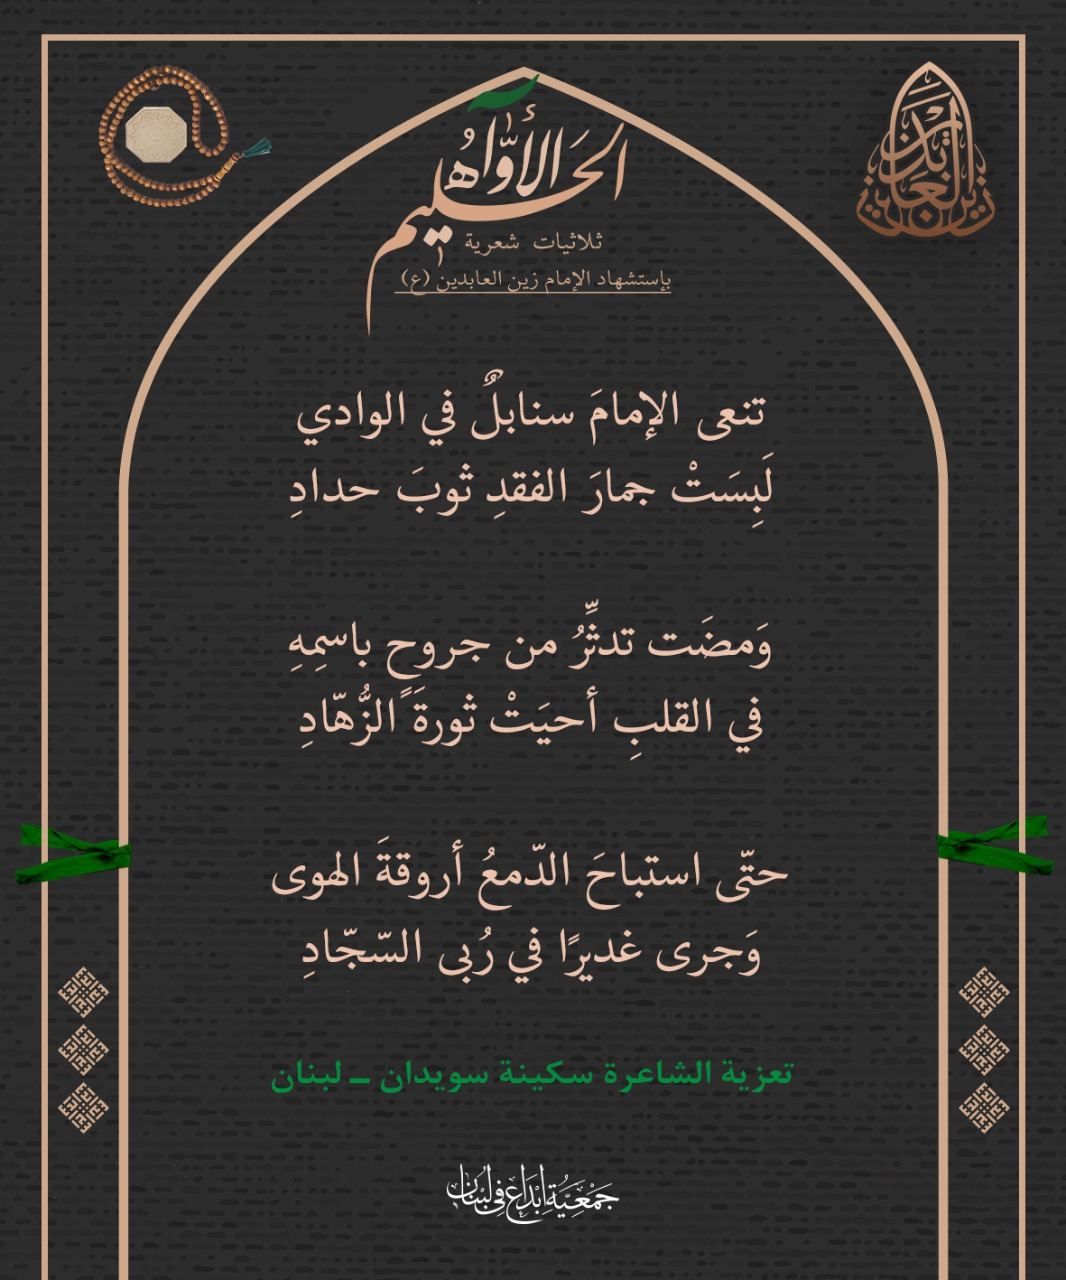 الأوّاه الحليم
ثلاثيات شعرية
بإستشهاد الإمام زين العابدين (ع)
زين العابدين
تنعى الإمامَ سنابلٌ في الوادي
لَبِسَتْ جمارَ الفقدِ ثوبَ حدادِ
وَمضَت تدثِّرُ من جروحٍ باسمِهِ
في القلبِ أحيَتْ ثورةَ الزُّهّادِ
حتّى استباحَ الدّمعُ أروقةَ الهوى
وَجرى غديرًا في رُبى السّجّادِ
تعزية الشاعرة سكينة سويدان – لبنان
جَمْعِيَّةُ إبْدَاع فِي لُبْنَان